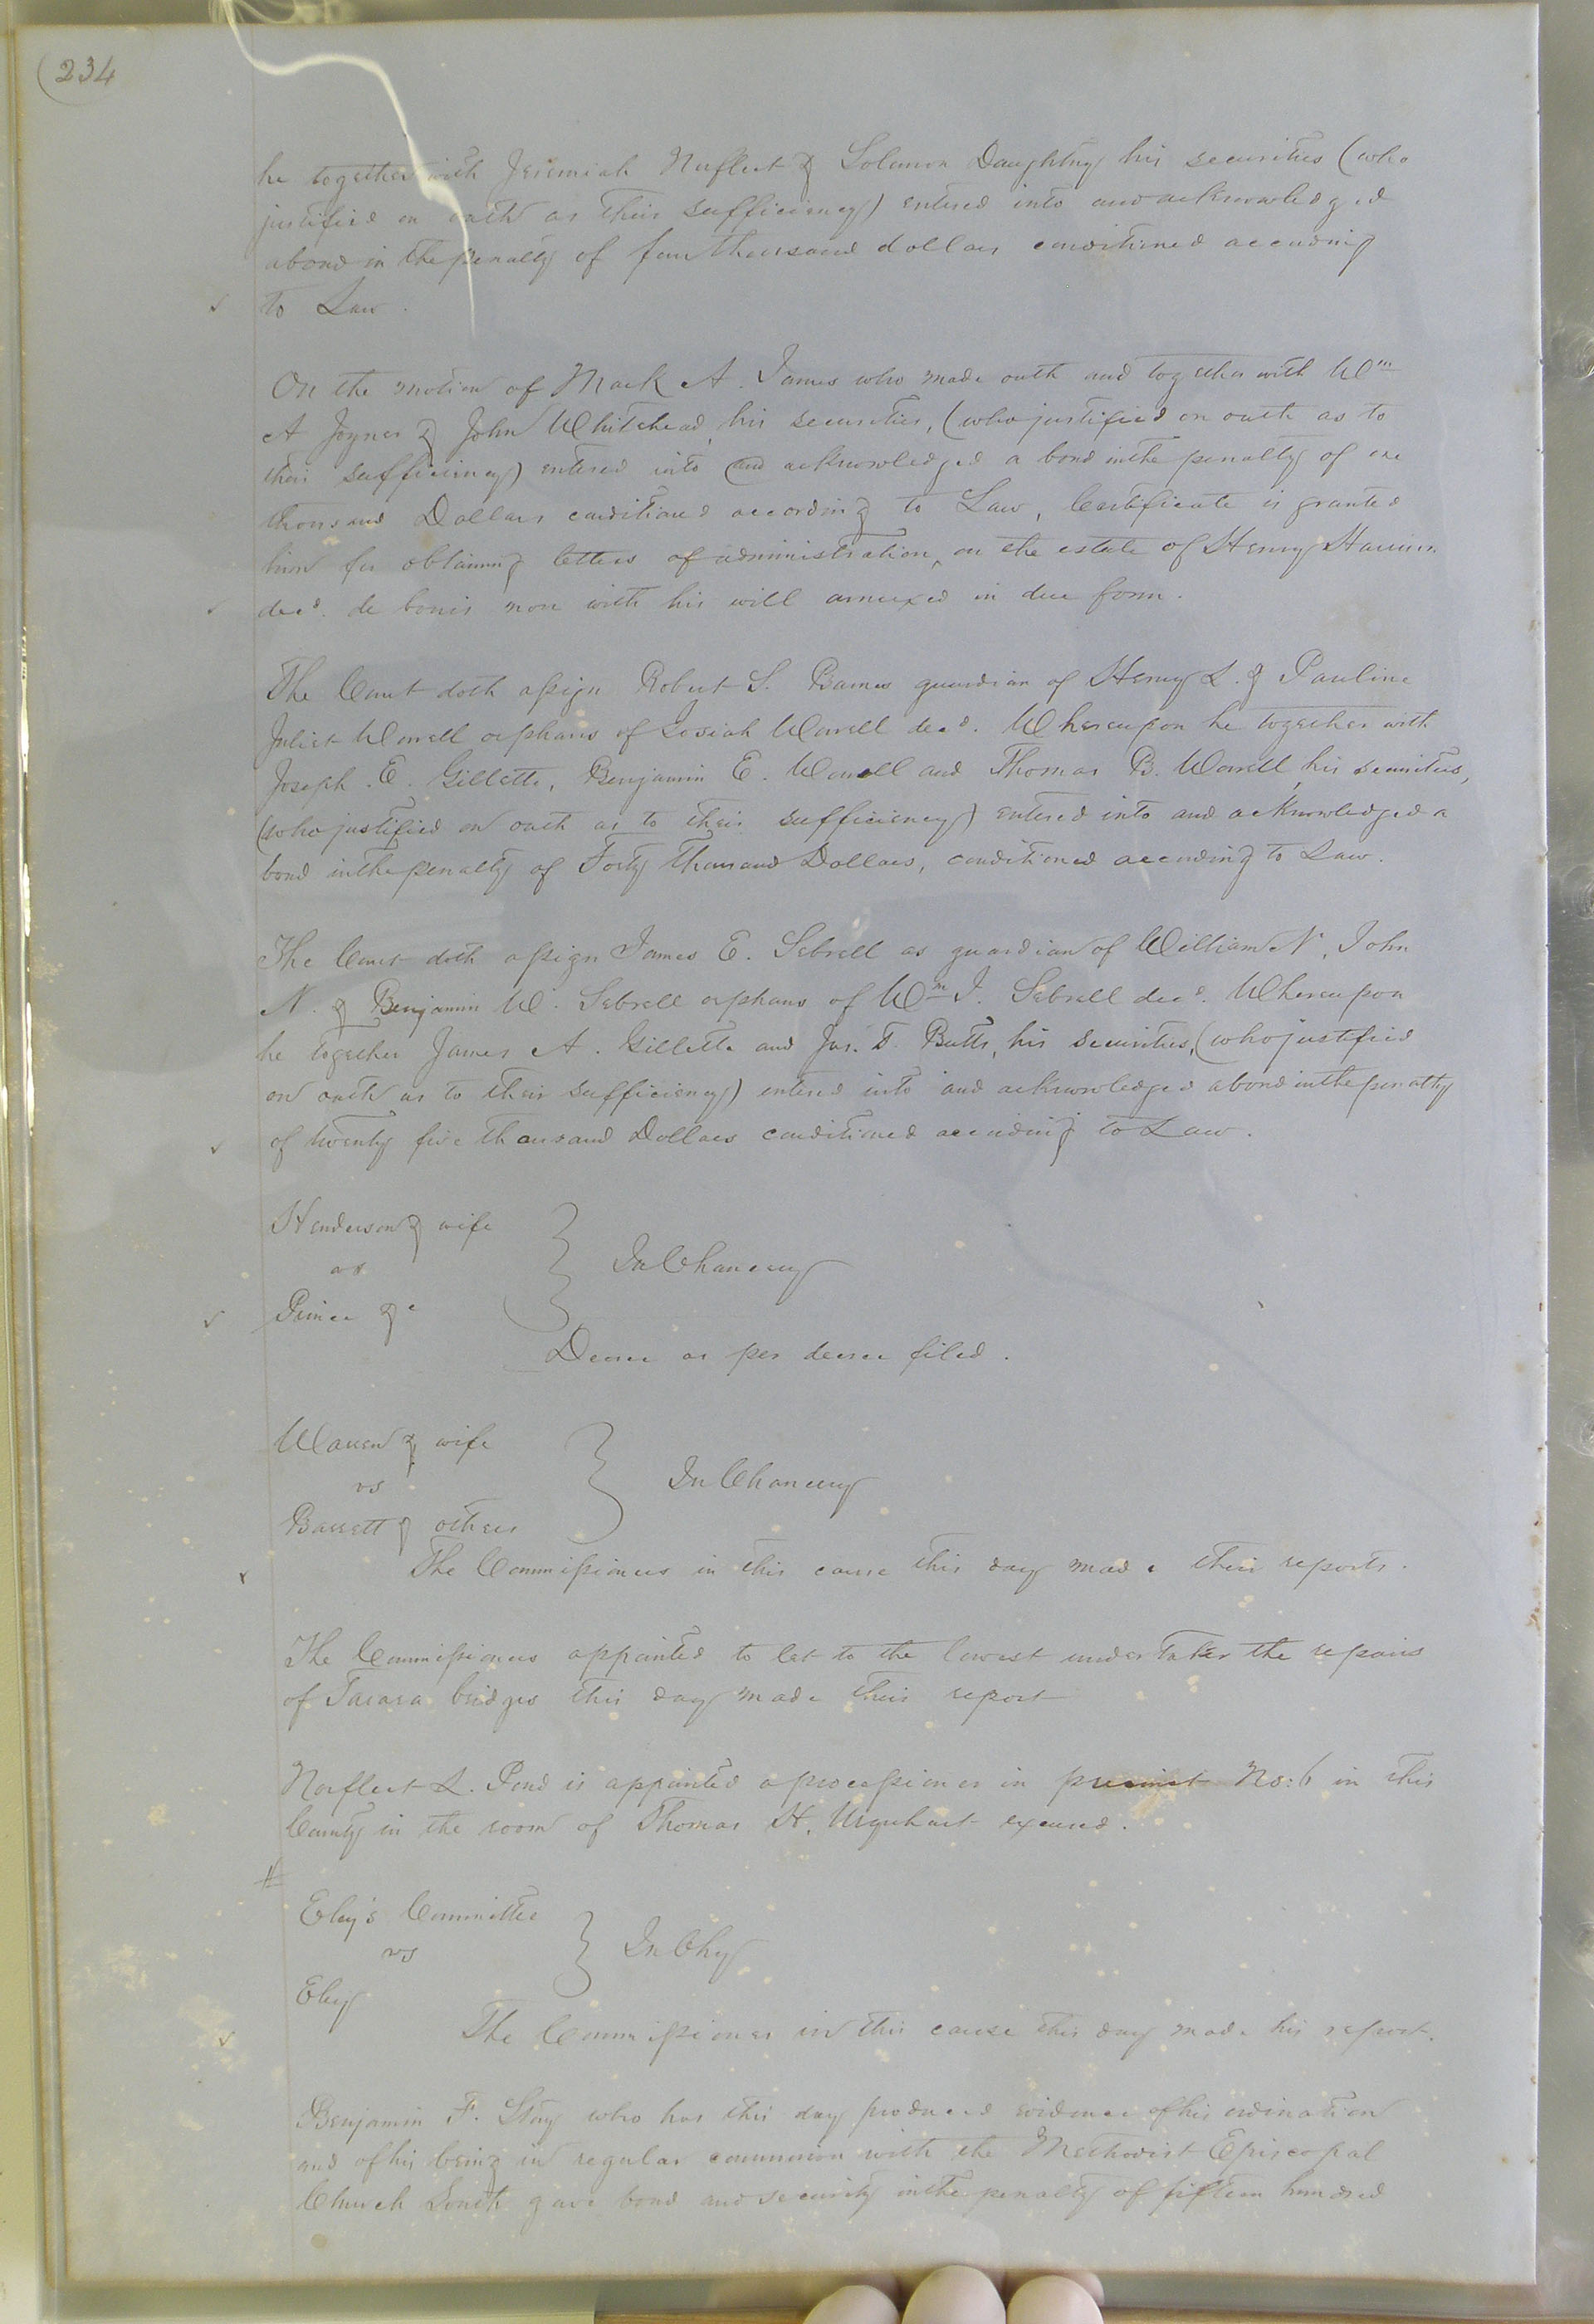 234
he together with Jeremiah Norfleet & Solomon Daughtry his securities (who
justified on oath as their sufficiency) entered into and acknowledged
abond in the penalty of four thousand dollars conditioned according
to Law.
On the motion of Mack A. James who made oath and together with Wm
A Joyner & John Whitehead his securities, (who justified on oath as to
their sufficiency) entered into and acknowledged a bond in the penalty of one
thousand Dollars conditioned according to Law, Certificate is granted
him for obtaining letters of administration, on the estate of Henry Harrison
decd. de bonis non with his will annexed in due form.
The Court doth assign Robert S. Barnes guardian of Henry L. & Pauline
Juliet Worrell orphans of Josiah Worrell decd. Whereupon he together with
Joseph E. Gillette, Benjamin E. Worrell and Thomas B. Worrell, his securities,
(who justified on oath as to their sufficiency) entered into and acknowledged a
bond in the penalty of Forty thousand Dollars, conditioned according to Law.
The Court doth assign James E. Sebrell as guardian of William N, John
N. & Benjamin W. Sebrell orphans of Wm J. Sebrell decd. Whereupon
he together James A. Gillette and Jas. T. Butts, his securities, (who justified
on oath as to their sufficiency) entered into and acknowledged abond in the penalty
of twenty five thousand Dollars conditioned according to Law.
Henderson & wife
vs
In Chancery
Prince &c
Decree as per decree filed.
Warren & wife
vs
In Chancery
Barrett & others
The Commissioners in this cause this day made their reports.
The Commissioners appointed to let to the lowest undertaker the repairs
of Tarara bridges this day made their report
Norfleet L. Pond is appointed a processioner in precinct No: 6 in this
County in the room of Thomas H. Urquhart excused.
#
Eley's Committee
vs
In Chy
Eley
The Commissioner in this cause this day made his report.
Benjamin F. who has this day produced evidence of his ordination
and of his being in regular communion with the Methodist Episcopal
Church South gave bond and security in the penalty of fifteen hundred